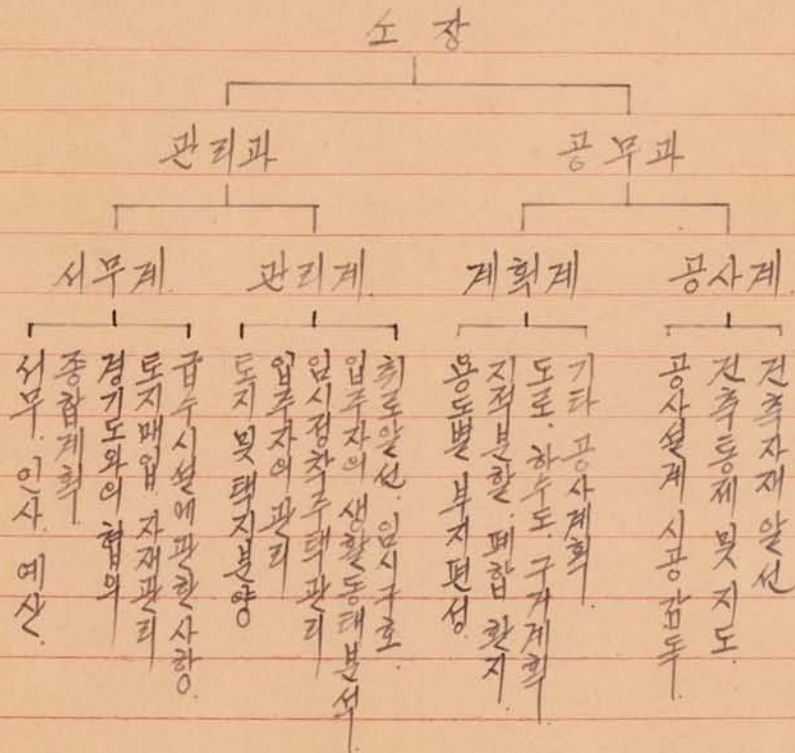 소장
관리과
공무과
서무계.
관리계.
계획계
공사계.
서무. 인사. 예산.
종합계획.
경기도와의 협의
토지매입. 자재관리
급수시설에 관한 사항.
토지 및 택지분양
입주자의 관리
임시정착주택관리
입주자의 생활동태분석
취로알선. 임시구호.
용도별 부지편성.
지적분할. 폐합 환지.
도로. 하수도. 구거계획
기타 공사계획.
공사설계 시공감독.
건축통제 및 지도.
건축자재 알선